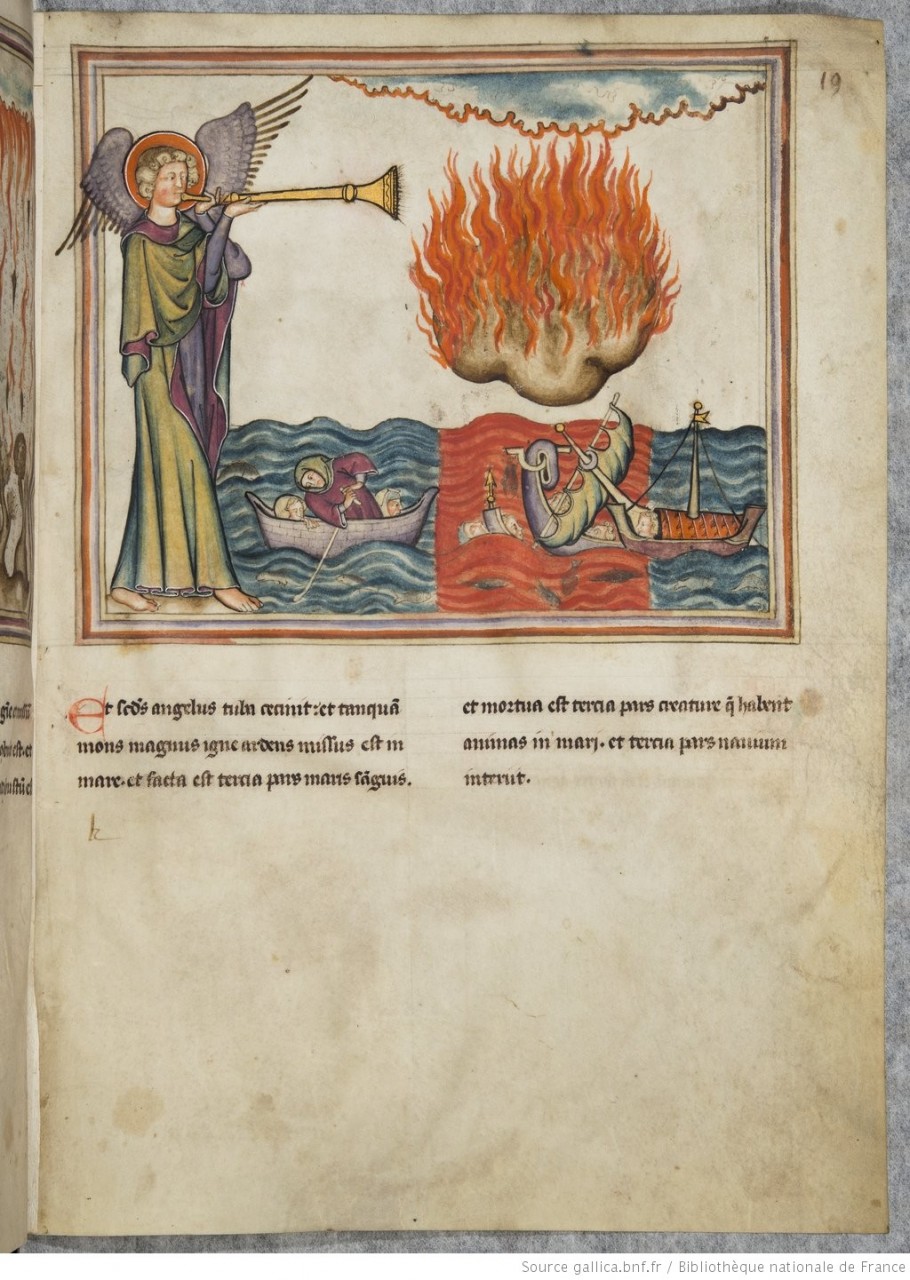 19
Et scds angelus tuba cecinit: et tanquā
mons magnus igne ardens missus est in
mare. et facta est tercia pars maris sāguis.
et mortua est tercia pars creature q̄ habent
animas in mari. et tercia pars nauium
interiit.
Source gallica.bnf.fr / Bibliothèque nationale de France